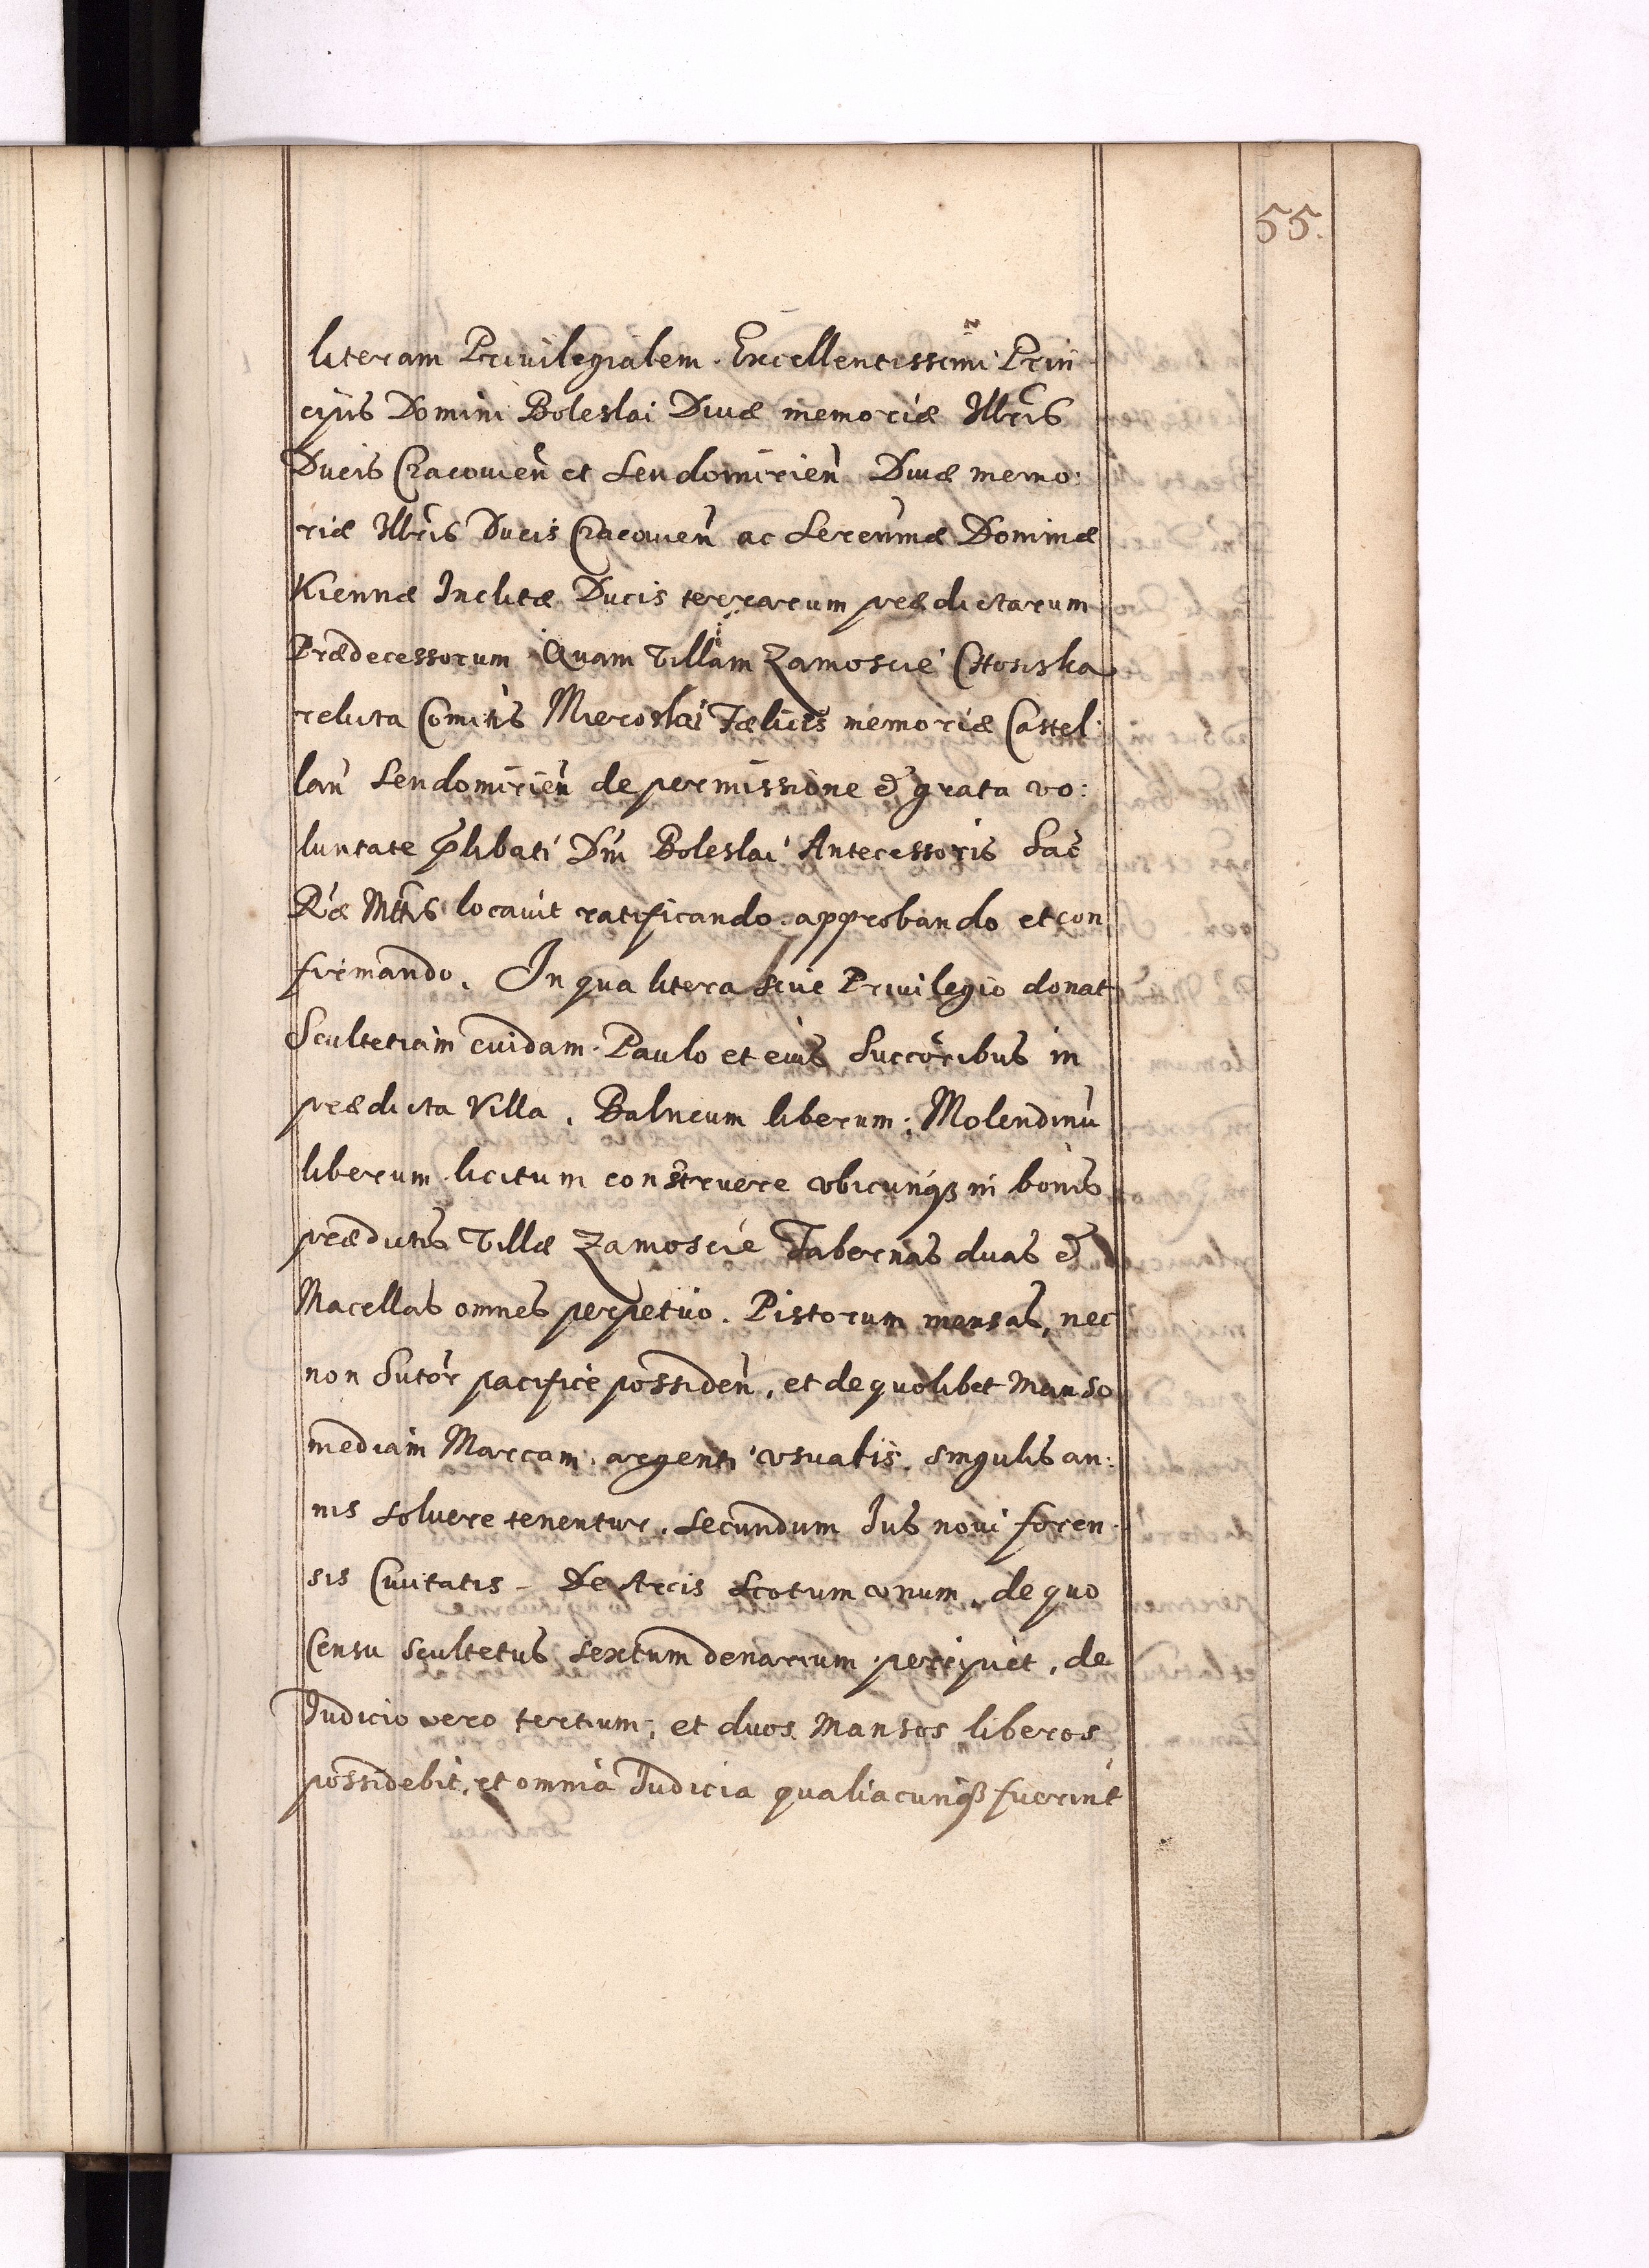 55.
literam Priuilegialem. Excellentissimi Prin
cipis Domini Boleslai Diuæ memoriæ Illris
Ducis Cracouien et Sendomirien Diuæ memo:
riæ Illris Ducis Cracouien ac Serenmæ Dominæ
Kiennæ Inclitæ Ducis terrarum prædictarum
Prædecessorum Quam Villam Zamoscie
relicta Comitis Mieroslai Fælicis memoriæ Castel:
lan Sendomirien de permissione et grata vo:
luntate plibati Dni Boleslai Antecessoris Sac
Ræ Mttis locauit ratificando. approbando et con
firmando. In qua litera siue Priuilegio donat
Scultetiam cuidam Paulo et eius Succoribus in
prædicta Villa. Balneum liberum; Molendinu
liberum licitum construere vbicunq in bonis
prædictis Villæ Zamoscie Tabernas duas et
Macellas omnes perpetuo. Pistorum mensas, nec
non Sutor pacifice possiden, et de quolibet Manso
mediam Marcam argenti vsualis. singulis an:
nis soluere tenentur. Secundum Ius noui foren
sis Ciuitatis - De Areis Scotum vnum. de quo
Censu Scultetus sextum denarium percipiet, de
Iudicio vero tertium; et duos Mansos liberos
possidebit, et omnia Iudicia qualiacunq fuerint